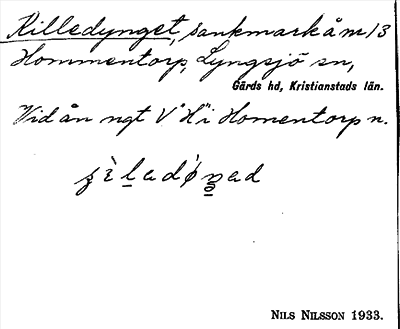 Killedynget, sankmark å m 13
Hommentorp, Lyngsjö sn,
Gärds hd, Kristianstads län.
Vid ån ngt V "H" i Homentorp n.
NILS NILSSON 1933.